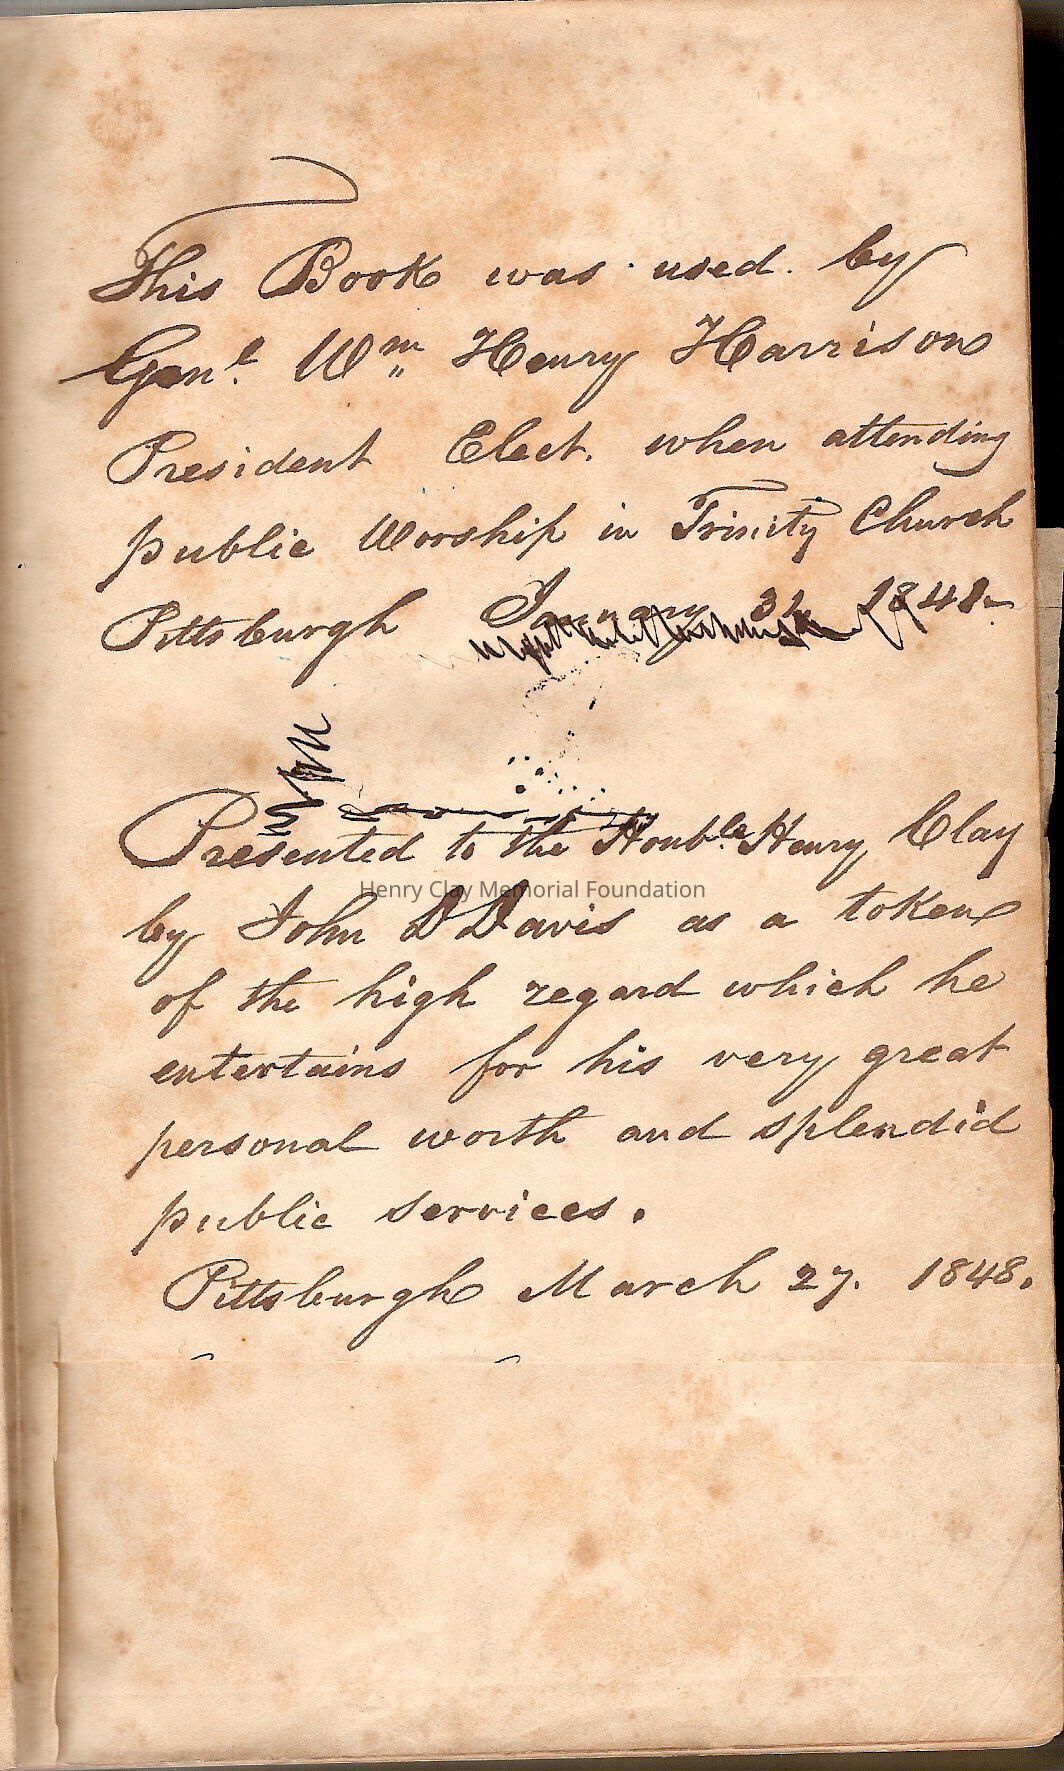 This Book was used. by
Genl. Wm Henry Harrison
President Elect. when attending
public Worship in Trinity Church
Pittsburgh January 31 1841
Presented to the Honble. Henry Clay
Henry Clay Memorial Foundation
by John D Davis as a token
of the high regard which he
entertains for his very great
personal worth and splendid
public services.
Pittsburgh March 27. 1848.